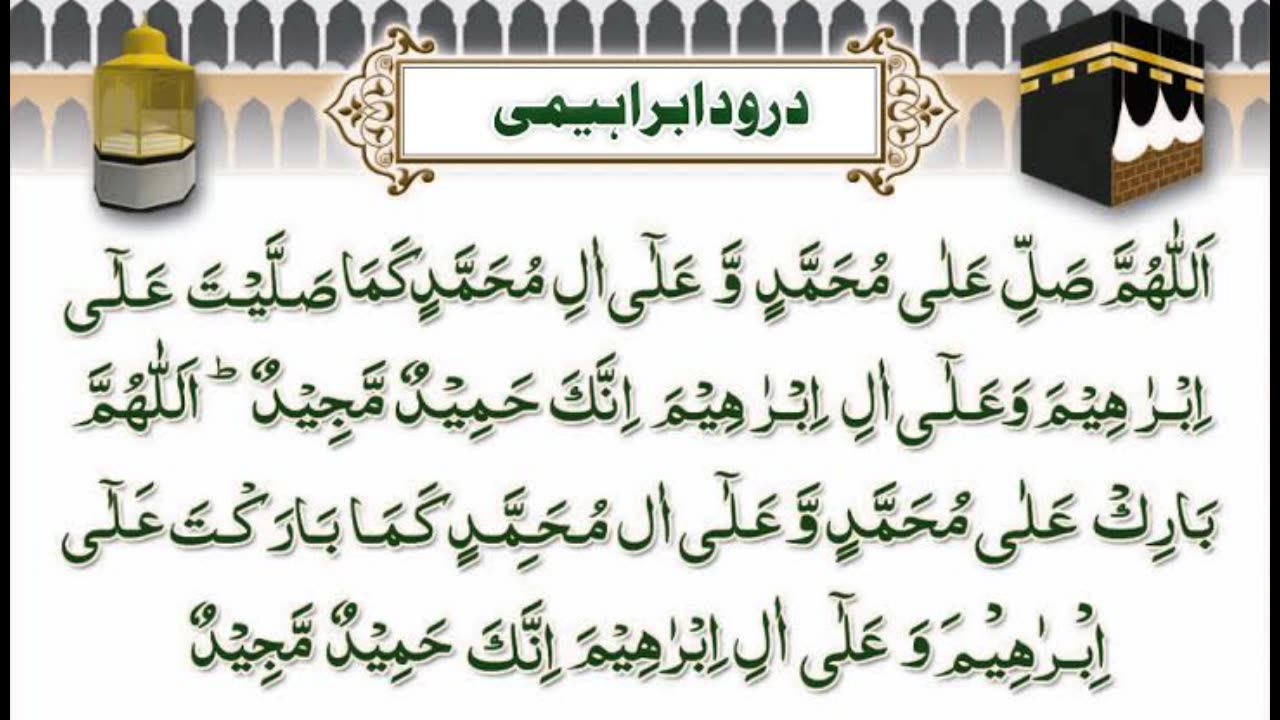 درود ابراہیمی
اَللّٰهُمَّ صَلِّ عَلٰى مُحَمَّدٍ وَّ عَلٰٓى اٰلِ مُحَمَّدٍ كَمَا صَلَّيْتَ عَلٰٓى
اِبْرٰهِيْمَ وَعَلٰٓى اٰلِ اِبْرٰهِيْمَ اِنَّكَ حَمِيْدٌ مَّجِيْدٌ ؕ اَللّٰهُمَّ
بَارِكْ عَلٰى مُحَمَّدٍ وَّ عَلٰٓى اٰل مُحَمِّدٍ كَمَا بَارَكْتَ عَلٰٓى
اِبْرٰهِيْمَ وَ عَلٰٓى اٰلِ اِبْرٰهِيْمَ اِنَّكَ حَمِيْدٌ مَّجِيْدٌ